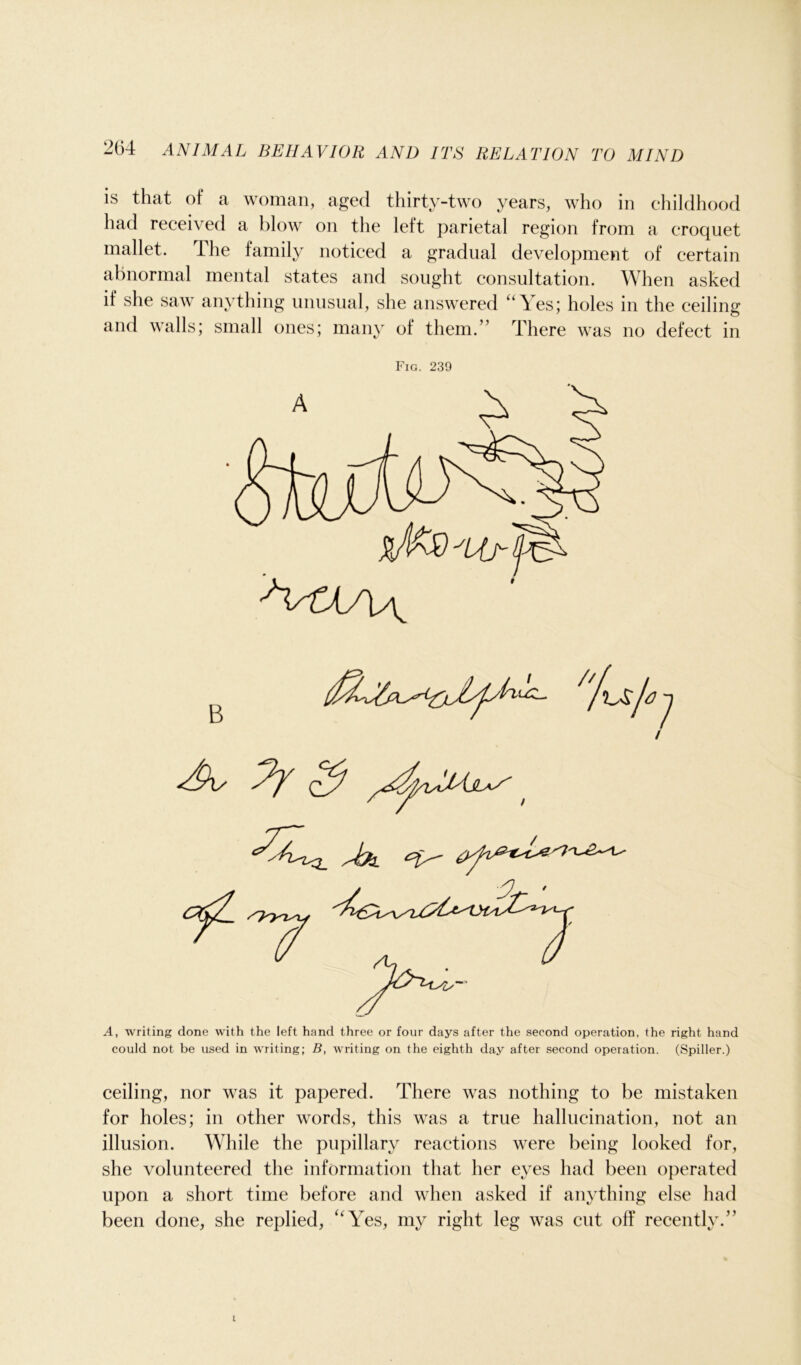 264 ANIMAL BEHAVIOR AND ITS RELATION TO MIND
is that of a woman, aged thirty-two years, who in childhood
had received a blow on the left parietal region from a croquet
mallet. The family noticed a gradual development of certain
abnormal mental states and sought consultation. When asked
if she saw anything unusual, she answered “Yes; holes in the ceiling
and walls; small ones; many of them.” There was no defect in
Fig. 239
A
B
A, writing done with the left hand three or four days after the second operation, the right hand
could not be used in writing; B, writing on the eighth day after second operation. (Spiller.)
ceiling, nor was it papered. There was nothing to be mistaken
for holes; in other words, this was a true hallucination, not an
illusion. While the pupillary reactions were being looked for,
she volunteered the information that her eyes had been operated
upon a short time before and when asked if anything else had
been done, she replied, “Yes, my right leg was cut off recently.”